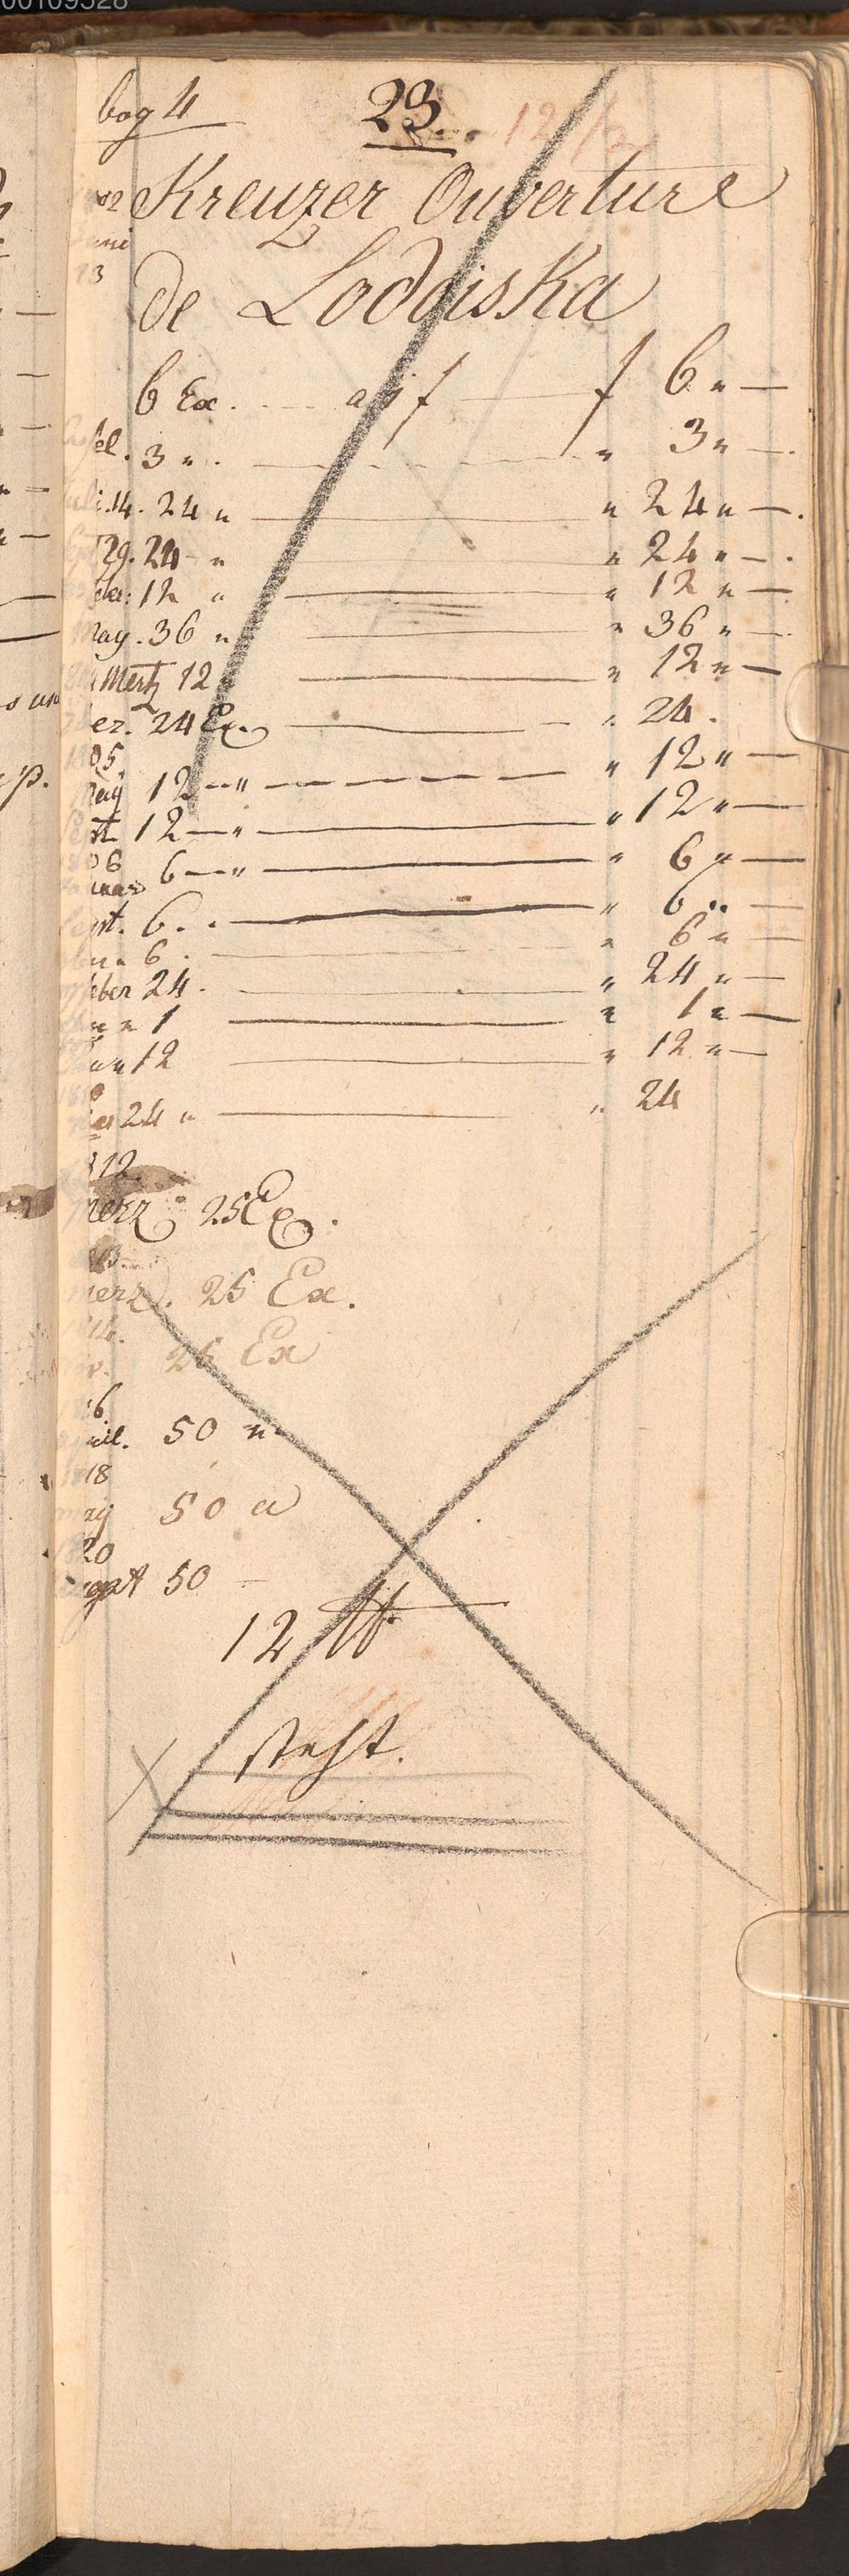 00109528
bog 4
23.
Kreuzer Ouverture
de Lodoiska
6 Ex. a 1 f f 6 " —
3 " . " 3 " —.
14. 24 " " 24 " —.
29. 24 " " 24 " — .
12 " " 12 " —
May. 36 " " 36 " —
Mertz 12 " " 12 " —
24 Ex. " 24 .
05
May 12 — " " 12 " —
12 — " " 12 " —
06
6 — " " 6 " —
6 . . " 6 " —
6 . " 6 " —
24 . " 24 " —
1 " 1 " —
12 " 12 " —
24 " " 24
12.
merz 25 Ex.
merz. 25 Ex.
14.
25 Ex
16
50 "
18
may 50 "
20
50 —
12 tt.
steht.